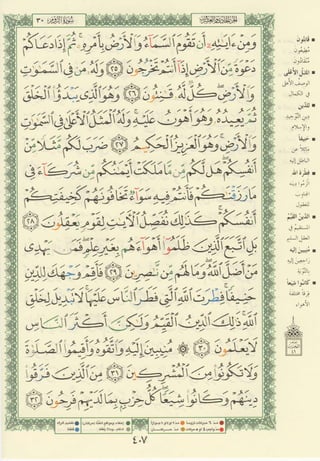 سورة الروم ٣٠
الجزء الحادي والعشرون
وَمِنْ ءَايَٰتِهِۦٓ أَن تَقُومَ ٱلسَّمَآءُ وَٱلْأَرْضُ بِأَمْرِهِۦ ۚ ثُمَّ إِذَا دَعَاكُمْ
دَعْوَةً مِّنَ ٱلْأَرْضِ إِذَآ أَنتُمْ تَخْرُجُونَ ٢٥ وَلَهُۥ مَن فِى ٱلسَّمَٰوَٰتِ
وَٱلْأَرْضِ ۖ كُلٌّ لَّهُۥ قَٰنِتُونَ ٢٦ وَهُوَ ٱلَّذِى يَبْدَؤُا۟ ٱلْخَلْقَ
ثُمَّ يُعِيدُهُۥ وَهُوَ أَهْوَنُ عَلَيْهِ ۚ وَلَهُ ٱلْمَثَلُ ٱلْأَعْلَىٰ فِى ٱلسَّمَٰوَٰتِ
وَٱلْأَرْضِ ۚ وَهُوَ ٱلْعَزِيزُ ٱلْحَكِيمُ ٢٧ ضَرَبَ لَكُم مَّثَلًا مِّنْ
أَنفُسِكُمْ ۖ هَل لَّكُم مِّن مَّا مَلَكَتْ أَيْمَٰنُكُم مِّن شُرَكَآءَ فِى
مَا رَزَقْنَٰكُمْ فَأَنتُمْ فِيهِ سَوَآءٌ تَخَافُونَهُمْ كَخِيفَتِكُمْ
أَنفُسَكُمْ ۚ كَذَٰلِكَ نُفَصِّلُ ٱلْءَايَٰتِ لِقَوْمٍ يَعْقِلُونَ ٢٨
بَلِ ٱتَّبَعَ ٱلَّذِينَ ظَلَمُوٓا۟ أَهْوَآءَهُم بِغَيْرِ عِلْمٍ ۖ فَمَن يَهْدِى
مَنْ أَضَلَّ ٱللَّهُ ۖ وَمَا لَهُم مِّن نَّٰصِرِينَ ٢٩ فَأَقِمْ وَجْهَكَ لِلدِّينِ
حَنِيفًا ۚ فِطْرَتَ ٱللَّهِ ٱلَّتِى فَطَرَ ٱلنَّاسَ عَلَيْهَا ۚ لَا تَبْدِيلَ لِخَلْقِ
ٱللَّهِ ۚ ذَٰلِكَ ٱلدِّينُ ٱلْقَيِّمُ وَلَٰكِنَّ أَكْثَرَ ٱلنَّاسِ
لَا يَعْلَمُونَ ٣٠ ۞ مُنِيبِينَ إِلَيْهِ وَٱتَّقُوهُ وَأَقِيمُوا۟ ٱلصَّلَوٰةَ
وَلَا تَكُونُوا۟ مِنَ ٱلْمُشْرِكِينَ ٣١ مِنَ ٱلَّذِينَ فَرَّقُوا۟
دِينَهُمْ وَكَانُوا۟ شِيَعًا ۖ كُلُّ حِزْبٍۭ بِمَا لَدَيْهِمْ فَرِحُونَ ٣٢
٤٠٧
قانتون
مطيعون
منقادون
المثل الأعلى
الوصف الأعلى
في الكمال
للدين
حنيفا
فطرة الله
الدين القيم
منيبين إليه
كانوا شيعا